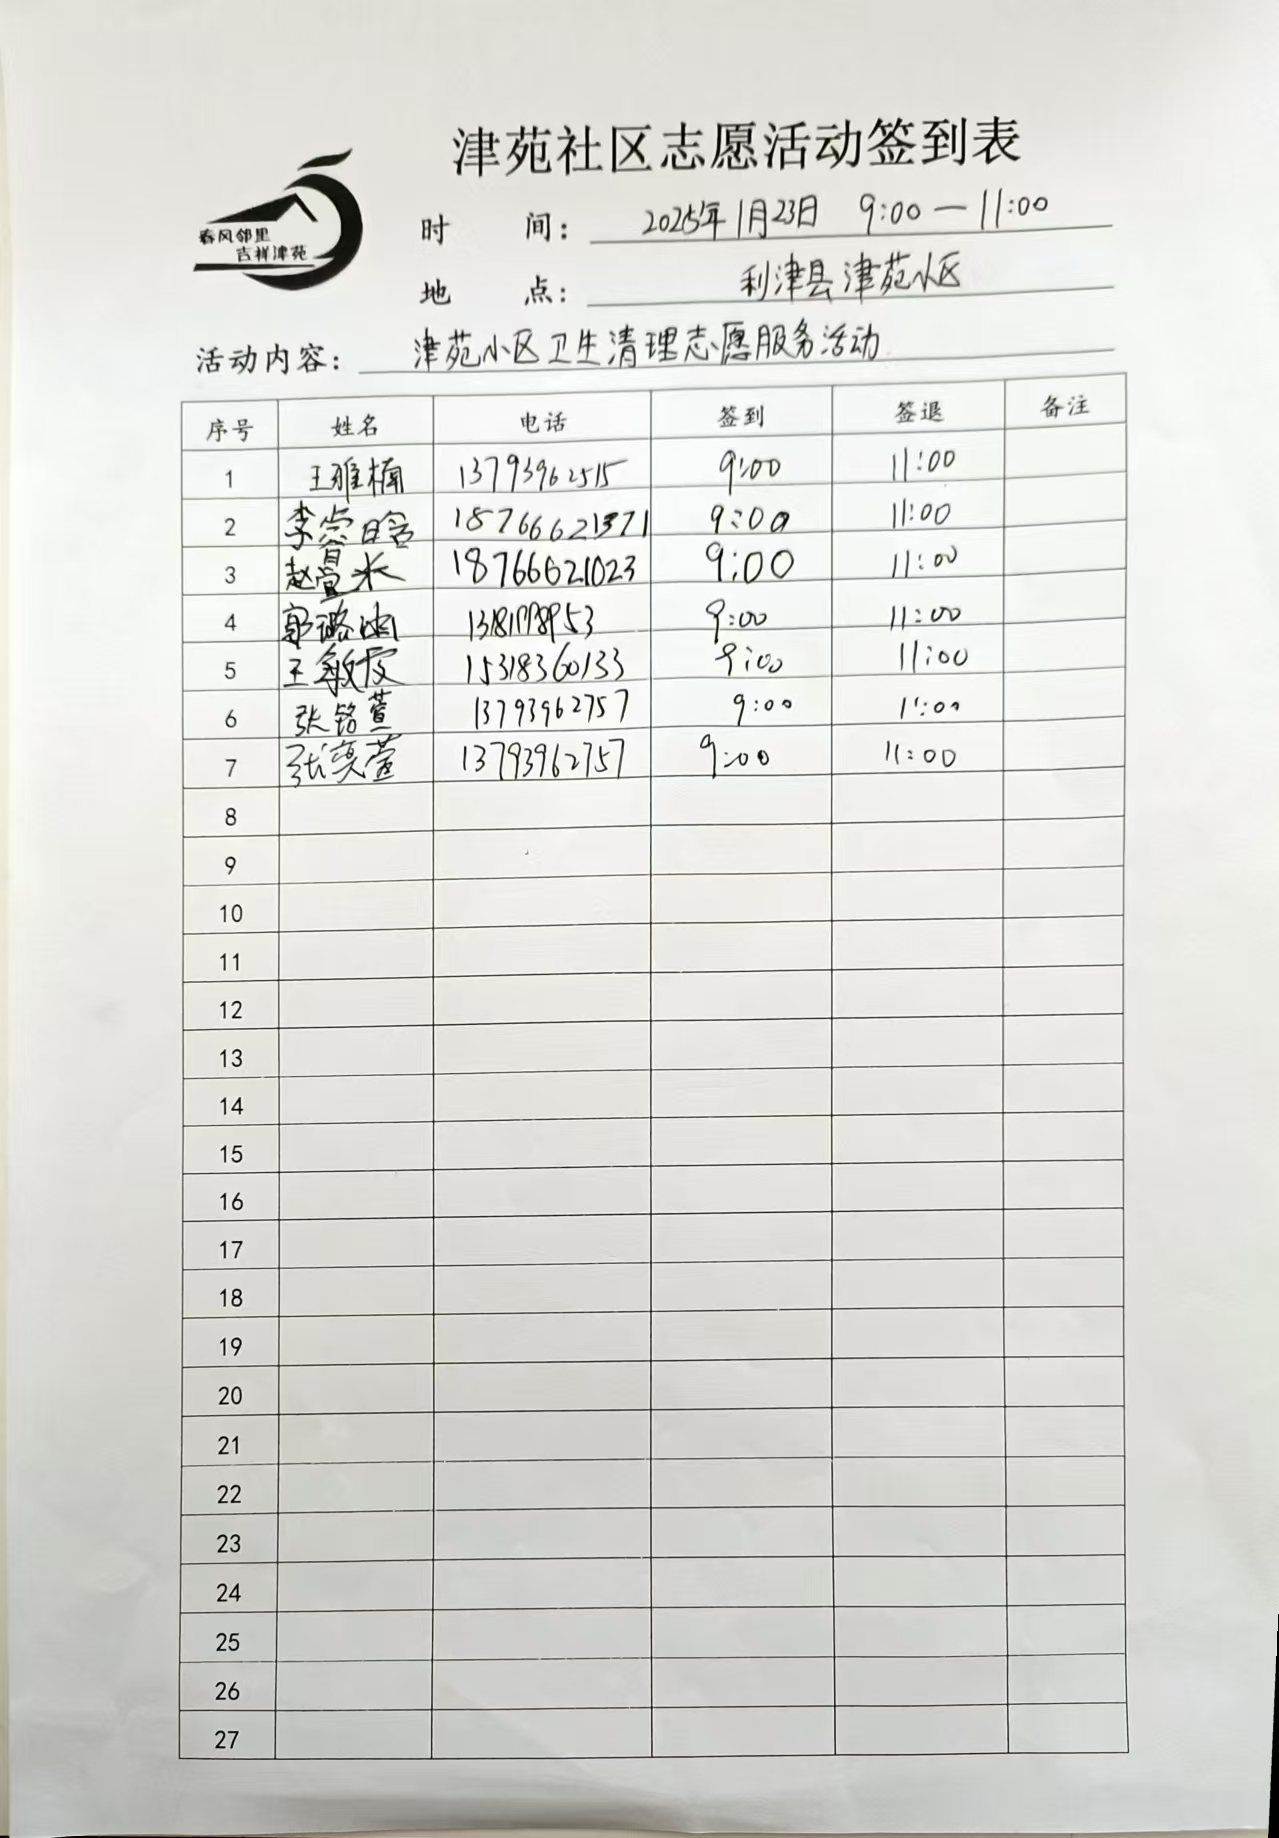 津苑社区志愿活动签到表
春风邻里
吉祥津苑
时 间： 2025年1月23日 9:00—11:00
地 点： 利津县津苑小区
活动内容： 津苑小区卫生清理志愿服务活动
序号 姓名 电话 签到 签退 备注
1 王雅楠 13793962515 9:00 11:00
2 李崇晗 18766621371 9:00 11:00
3 18766621023 9:00 11:00
4 9:00 11:00
5 王敏 15318360133 9:00 11:00
6 张铭萱 13793962757 9:00 11:00
7 张奕萱 13793962757 9:00 11:00
8
9
10
11
12
13
14
15
16
17
18
19
20
21
22
23
24
25
26
27